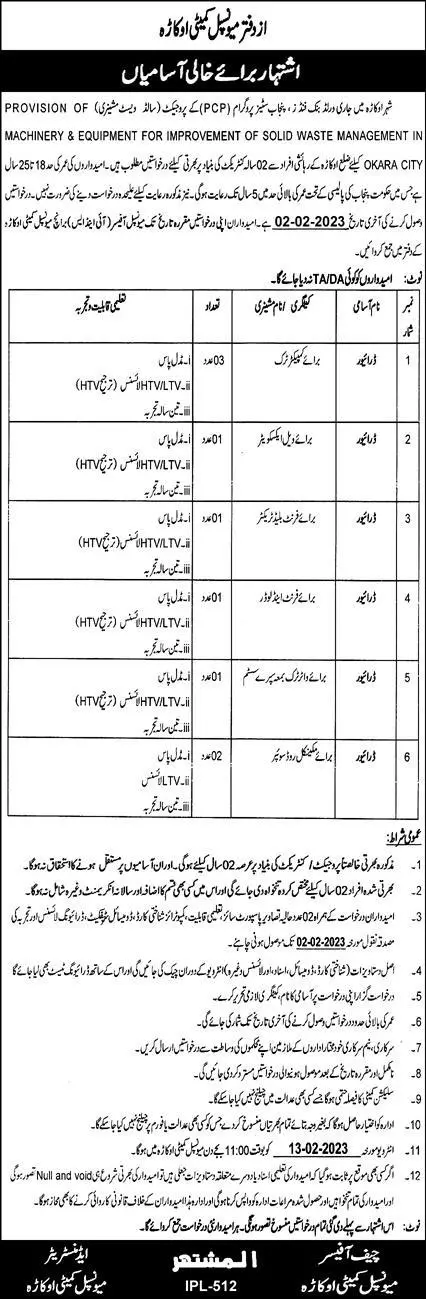 از دفتر میونسپل کمیٹی اوکاڑہ
اشتہار برائے خالی آسامیاں
شہر اوکاڑہ میں جاری ورلڈ بنک فنڈز، پنجاب سٹیز پروگرام (PCP) کے پروجیکٹ (سالڈ ویسٹ مشینری) PROVISION OF
MACHINERY & EQUIPMENT FOR IMPROVEMENT OF SOLID WASTE MANAGEMENT IN
OKARA CITY کیلئے ضلع اوکاڑہ کے رہائشی افراد سے 02 سالہ کنٹریکٹ کی بنیاد پر بھرتی کیلئے درخواستیں مطلوب ہیں۔ امیدواروں کی عمر کی حد 18 تا 25 سال
ہے جس میں حکومت پنجاب کی پالیسی کے تحت عمر کی بالائی حد میں 5 سال تک رعایت ہو گی۔ نیز مذکورہ رعایت کیلئے علیحدہ درخواست دینے کی ضرورت نہیں۔ درخواستیں
وصول کرنے کی آخری تاریخ 02-02-2023 ہے۔ امیدواران اپنی درخواستیں مقررہ تاریخ تک میونسپل آفیسر (آئی اینڈ ایس) برانچ میونسپل کمیٹی اوکاڑہ
کے دفتر میں جمع کروائیں۔
نوٹ: امیدواروں کو کوئی TA/DA نہ دیا جائے گا۔
نمبر شمار نام آسامی کیٹگری / نام مشینری تعداد تعلیمی قابلیت و تجربہ
1 ڈرائیور برائے کمپیکٹر ٹرک 03 عدد i۔ مڈل پاس
ii۔ HTV/LTV لائسنس (ترجیح HTV)
iii۔ تین سالہ تجربہ
2 ڈرائیور برائے ویل ایکسکویٹر 01 عدد i۔ مڈل پاس
ii۔ HTV/LTV لائسنس (ترجیح HTV)
iii۔ تین سالہ تجربہ
3 ڈرائیور برائے فرنٹ بلیڈ ٹریکٹر 01 عدد i۔ مڈل پاس
ii۔ HTV/LTV لائسنس (ترجیح HTV)
iii۔ تین سالہ تجربہ
4 ڈرائیور برائے فرنٹ اینڈ لوڈر 01 عدد i۔ مڈل پاس
ii۔ HTV/LTV لائسنس (ترجیح HTV)
iii۔ تین سالہ تجربہ
5 ڈرائیور برائے واٹر ٹرک بمعہ سپرے سسٹم 01 عدد i۔ مڈل پاس
ii۔ HTV/LTV لائسنس (ترجیح HTV)
iii۔ تین سالہ تجربہ
6 ڈرائیور برائے مکینیکل روڈ سویپر 02 عدد i۔ مڈل پاس
ii۔ LTV لائسنس
iii۔ تین سالہ تجربہ
عمومی شرائط:
1۔ مذکورہ بھرتی خالصتاً پروجیکٹ / کنٹریکٹ کی بنیاد پر عرصہ 02 سال کیلئے ہو گی۔ اور ان آسامیوں پر مستقل ہونے کا استحقاق نہ ہو گا۔
2۔ بھرتی شدہ افراد 02 سال کیلئے مختص کردہ تنخواہ دی جائے گی اور اس میں کسی بھی قسم کا اضافہ اور سالانہ انکریمنٹ وغیرہ شامل نہ ہو گا۔
3۔ امیدواران درخواست کے ہمراہ 02 عدد حالیہ تصاویر پاسپورٹ سائز، تعلیمی قابلیت، کمپیوٹرائز شناختی کارڈ، ڈومیسائل سرٹیفکیٹ، ڈرائیونگ لائسنس اور تجربہ کی
مصدقہ نقول مورخہ 02-02-2023 تک موصول ہونی چاہئے۔
4۔ اصل دستاویزات (شناختی کارڈ، ڈومیسائل، اسناد، اور لائسنس وغیرہ) انٹرویو کے دوران چیک کی جائیں گی اور اس کے ساتھ ڈرائیونگ ٹیسٹ بھی لیا جائے گا
5۔ درخواست گزار اپنی درخواست پر آسامی کا نام، کیٹگری لازمی تحریر کرے۔
6۔ عمر کی بالائی حد درخواستیں وصول کرنے کی آخری تاریخ تک شمار کی جائے گی۔
7۔ سرکاری، نیم سرکاری خود مختار اداروں کے ملازمین اپنے محکموں کی وساطت سے درخواستیں ارسال کریں۔
8۔ نامکمل اور مقررہ تاریخ کے بعد موصول ہونیوالی درخواستیں مسترد کر دی جائیں گی۔
9۔ سلیکشن کمیٹی کا فیصلہ حتمی ہو گا جسے کسی بھی عدالت میں چیلنج نہیں کیا جا سکے گا۔
10۔ ادارہ کو اختیار حاصل ہو گا کہ بغیر وجہ بتائے تمام بھرتیاں منسوخ کر دے جس کو کسی بھی عدالت یا فورم پر چیلنج نہیں کیا جا سکے گا۔
11۔ انٹرویو مورخہ 13-02-2023 کو بوقت 11:00 بجے دن میونسپل کمیٹی اوکاڑہ میں ہو گا۔
12۔ اگر کسی بھی موقع پر ثابت ہو گیا کہ امیدوار کی تعلیمی اسناد یا دوسرے متعلقہ دستاویزات جعلی ہیں تو امیدوار کی بھرتی شروع ہی Null and void تصور ہو گی
اور امیدوار کی تمام تنخواہیں اور حصول شدہ مراعات ادارہ کو واپس کرنا ہو گی اور ادارہ ہذا امیدواران کے خلاف قانونی کاروائی کرنے کا بھی مجاز ہو گا۔
نوٹ: اس اشتہار سے پہلے دی گئی تمام درخواستیں منسوخ تصور ہو گی۔ ہر امیدوار نئی درخواست جمع کروائے گا۔
المشتہر
چیف آفیسر ایڈمنسٹریٹر
میونسپل کمیٹی اوکاڑہ IPL-512 میونسپل کمیٹی اوکاڑہ